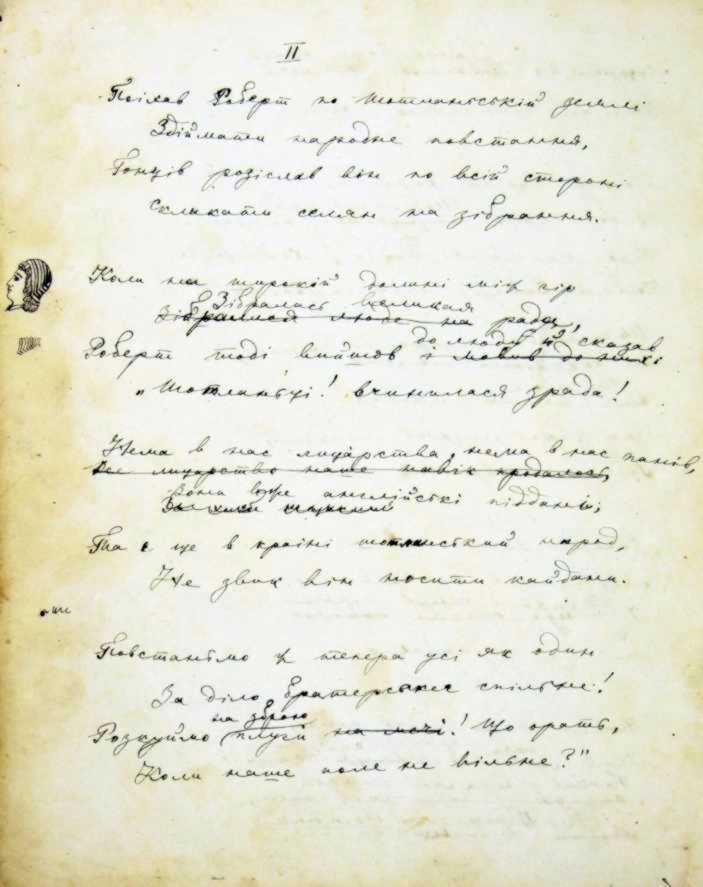 II
Поїхав Роберт по шотландській землі
Здіймати народне повстання,
Гонців розіслав він по всій стороні
Скликати селян на зібрання.
Коли на широкій долині між гір
Зібралась великая
Зібралися люде на раду,
до люду й сказав
Роберт тоді вийшов і мовив до них:
„Шотландці! вчинилася зрада!
Нема в нас лицарства, нема в нас панів,
Все лицарство наше навік продалось,
Вони вже англійські піддані;
Та є ще в країні шотланський народ,
Не звик він носити кайдани.
Повстаньмо ж тепера усі як один
За діло братерськеє спільне!
на зброю
Розкуймо плуги на мечі! Що орать,
Коли наше поле не вільне?"